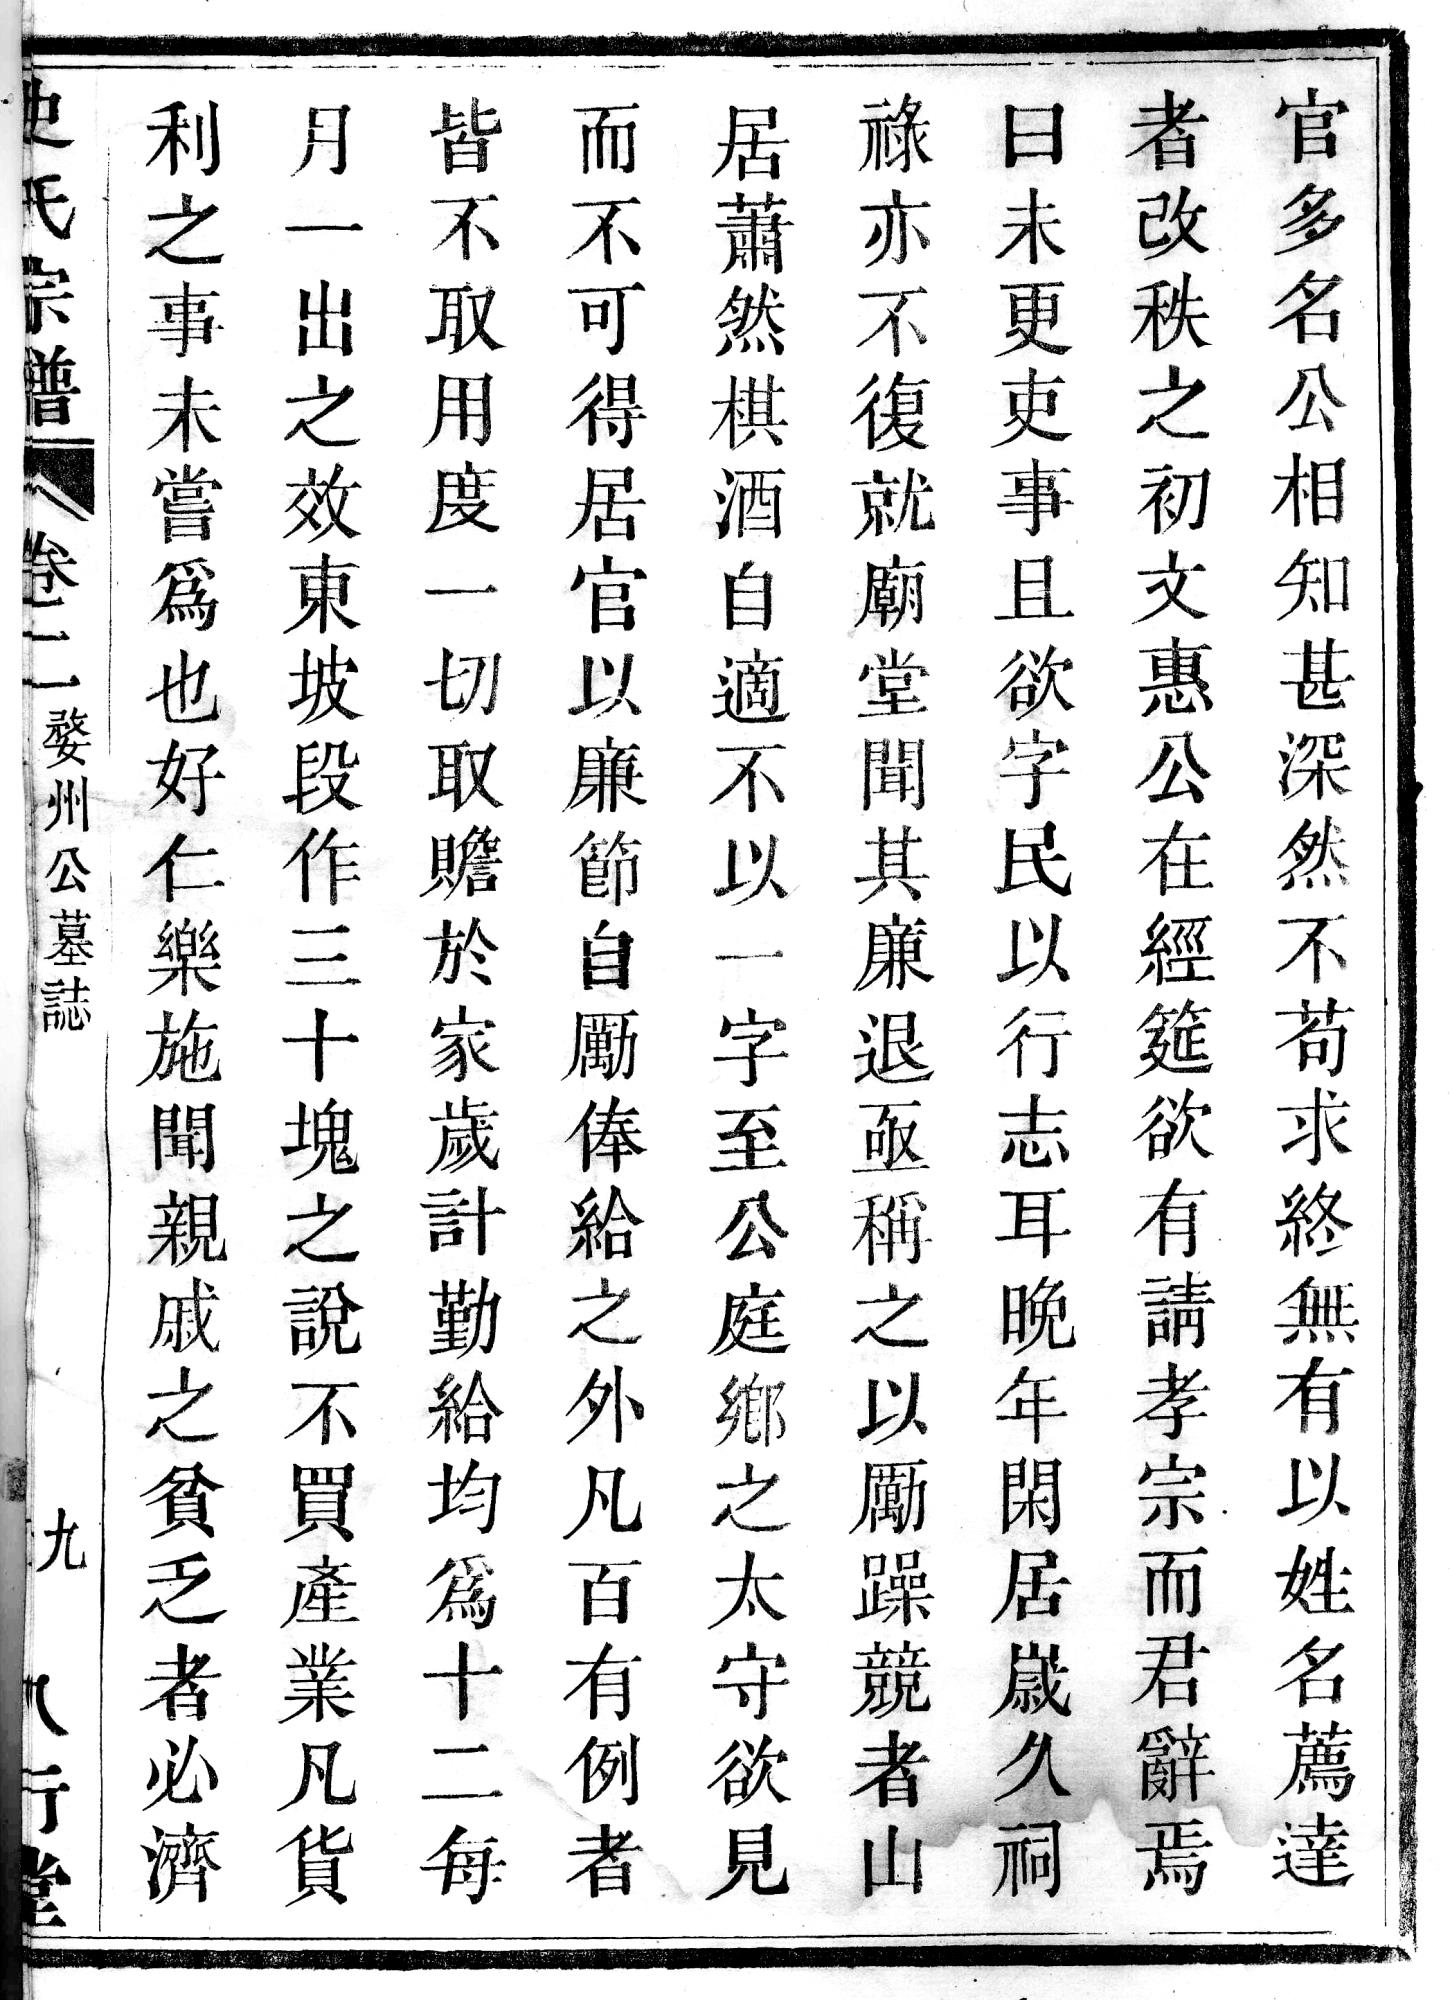 官多名公相知甚深然不苟求終無有以姓名薦達
者改秩之初文惠公在經筵欲有請孝宗而君辭焉
曰未更吏事且欲字民以行志耳晚年閑居歲久祠
祿亦不復就廟堂聞其廉退亟稱之以厲躁競者山
居蕭然棋酒自適不以一字至公庭鄉之太守欲見
而不可得居官以廉節自厲俸給之外凡百有例者
皆不取用度一切取贍於家歲計勤給均爲十二每
月一出之效東坡段作三十塊之說不買產業凡貨
利之事未嘗爲也好仁樂施聞親戚之貧乏者必濟
史氏宗譜 卷二 婺州公墓誌 九 八行堂